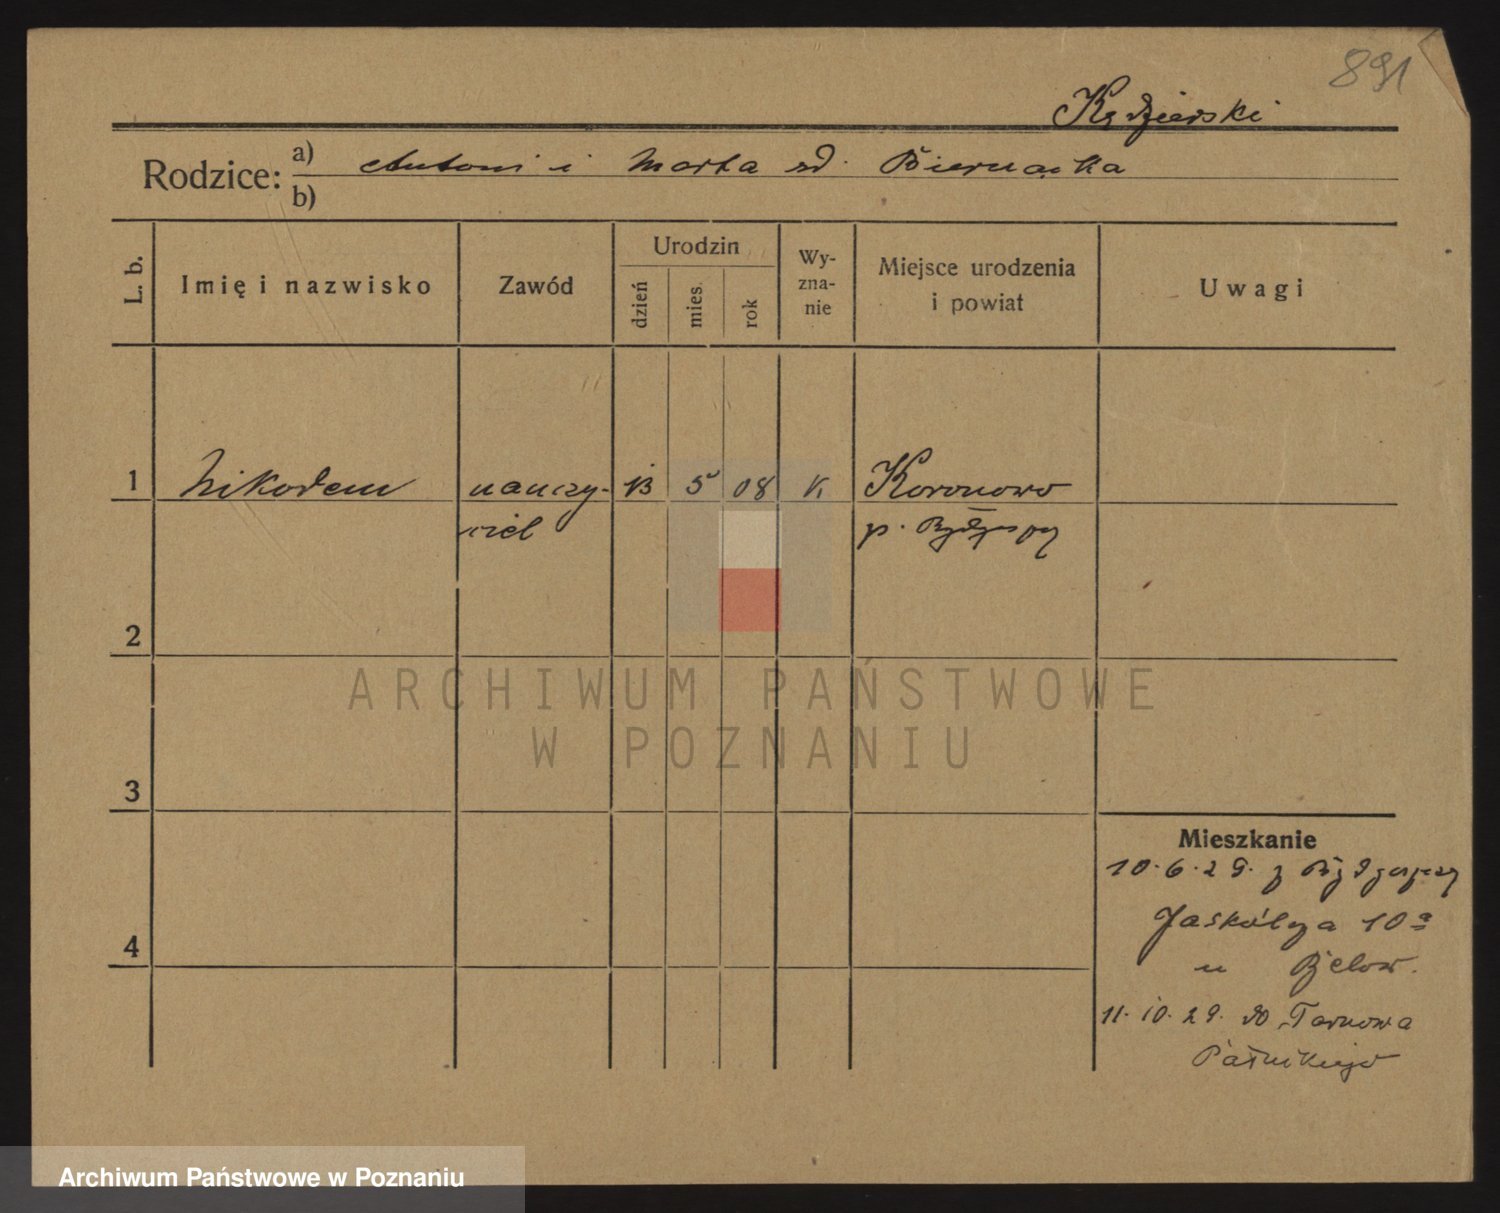 891
Kędzierski
Rodzice: a) Antoni i Marta zd. Biernacka
b)
L. b.
Imię i nazwisko
Zawód
Urodzin
dzień
mies.
rok
Wy-
zna-
nie
Miejsce urodzenia
i powiat
Uwagi
1 Nikodem nauczy- 13 5 08 K Koronowo
ciel p. Bydgoszcz
2
3
4
Mieszkanie
10.6.29. z Bydgoszczy
Jaskółcza 10a
u
11.10.29. do Tarnowa
Pałuckiego
ARCHIWUM PAŃSTWOWE
W POZNANIU
Archiwum Państwowe w Poznaniu